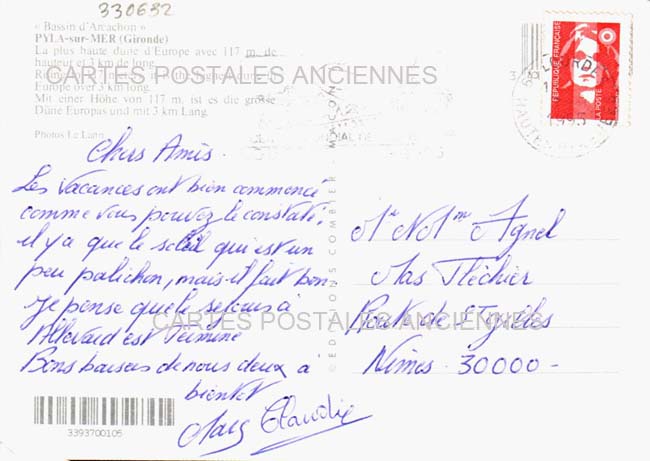 330632
« Bassin d'Arcachon »
PYLA-sur-MER (Gironde)
La plus haute dune d'Europe avec 117 m. de
hauteur et 3 km de long.
Europe over 3 km long.
Mit einer Höhe von 117 m. ist es die grösse
Düne Europas und mit 3 km Lang.
Photos Le Lann
CARTES POSTALES ANCIENNES
REPUBLIQUE FRANÇAISE
LA POSTE
LOURDES
HAUTES
EDITIONS COMBIER MACON
Chers Amis.
Les vacances ont bien commencé
comme vous pouvez le constaté,
il y a que le soleil qui est un
peu palichon, mais il fait bon
je pense que le sejours à
Allevard est Terminé
Bons baisers de nous deux a
bientôt
Claudie
Mr Mme Agnel
Mas Fléchier
Route de St Gilles
CARTES POSTALES ANCIENNES
Nimes 30000-
3393700105